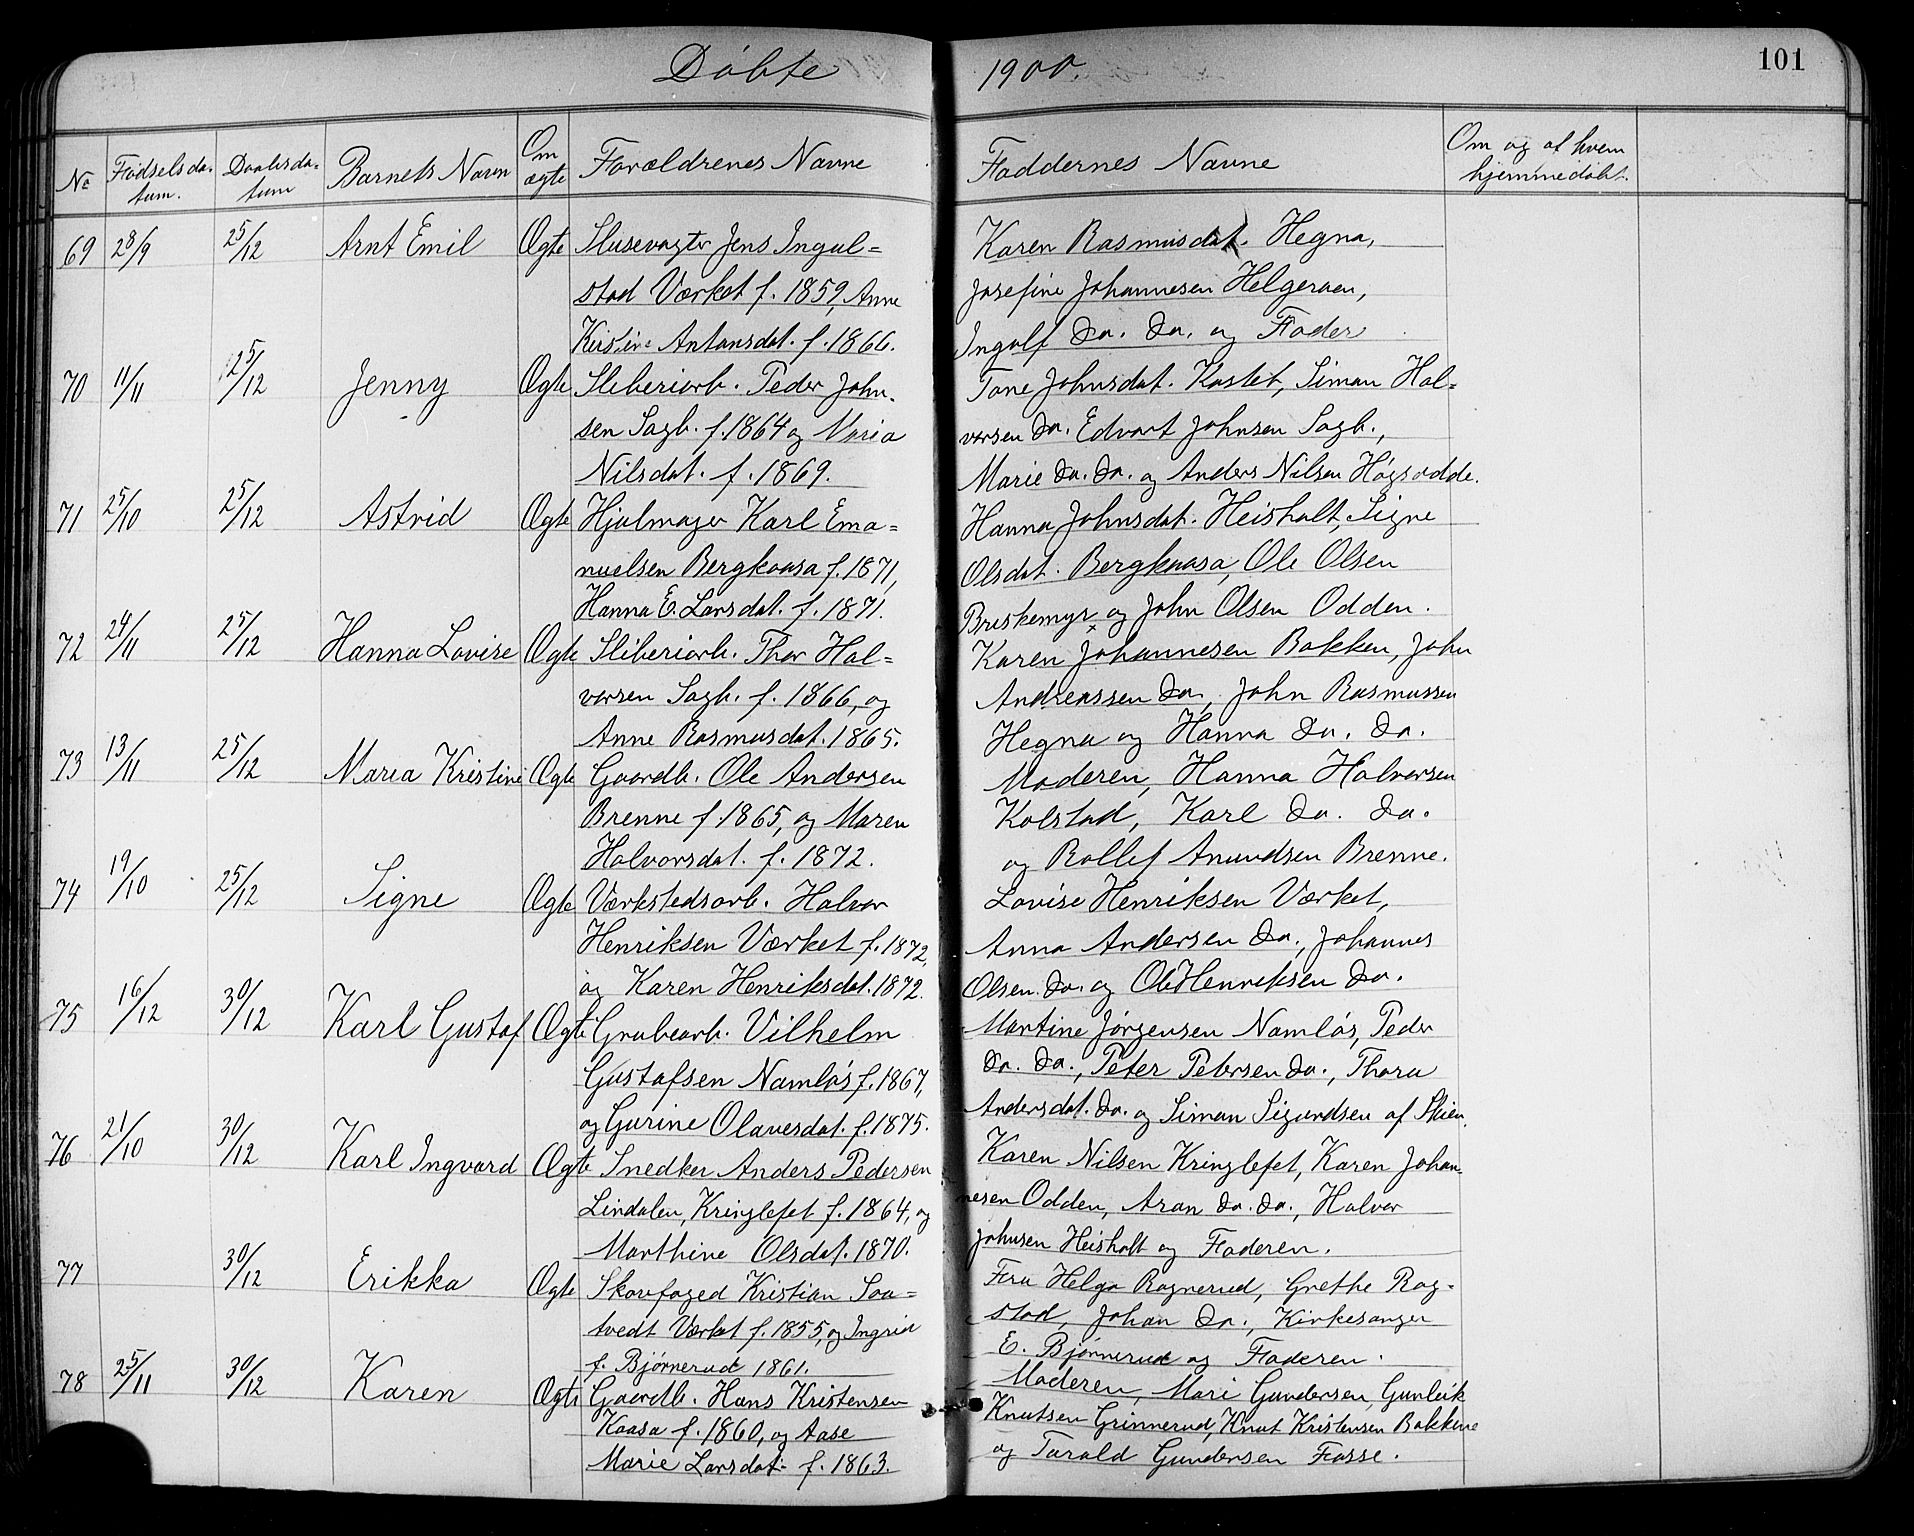 Döbte 1900. 101
№ Fødselsda- Daabsda- Barnets Navn Om Forældrenes Navne Faddernes Navne Om og af hvem
tum. tum ægte hjemmedøbt.
69 28/9 25/12 Arnt Emil Ægte Slusevagter Jens Ingul= Karen Rasmusdat. Hegna,
stad Værket f. 1859, Anne Josefine Johannesen Helgeraen,
Kirstine Antonsdat. f. 1866. Ingolf do. do. og Fader
70 11/11 25/12 Jenny Ægte Sliberiarb. Peder John- Tone Johnsdat. Kastet, Simon Hal=
sen Sagb. f. 1864 og Maria vorsen do. Edvart Johnsen Sagb.,
Nilsdat. f. 1869. Marie do. do. og Anders Nilsen Høgsodde.
71 25/10 25/12 Astrid Ægte Hjulmager Karl Ema= Hanna Johnsdat. Heisholt, Signe
nuelsen Bergkaasa f. 1871, Olsdat. Bergkaasa, Ole Olsen
Hanna E. Larsdat. f. 1871. Briskemyr og John Olsen Odden.
72 24/11 25/12 Hanna Lovise Ægte Sliberiarb. Thor Hal= Karen Johannesen Bakken, John
vorsen Sagb. f. 1866, og Andreassen do., John Rasmussen
Anne Rasmusdat. 1865. Hegna og Hanna do. do.
73 13/11 25/12 Maria Kristine Ægte Gaardb. Ole Andersen Moderen, Hanna Halvorsen
Brenne f. 1865, og Maren Kolstad, Karl do. do.
Halvorsdat. f. 1872. og Rollef Anundsen Brenne.
74 19/10 25/12 Signe Ægte Værkstedsarb. Halvor Lovise Henriksen Værket,
Henriksen Værket f. 1872, Anna Andersen do., Johannes
og Karen Henriksdat. 1872. Olsen do. og Ole Henriksen do.
75 16/12 30/12 Karl Gustaf Ægte Grubearb. Vilhelm Martine Jørgensen Namløs, Peder
Gustafsen Namløs f. 1867, do. do., Peter Petersen do., Thora
og Gurine Olavesdat. f. 1875. Andersdat. do. og Simon Sigurdsen af Skien.
76 21/10 30/12 Karl Ingvard Ægte Snedker Anders Pedersen Karen Nilsen Kringlefet, Karen Johan-
Lindalen, Kringlefet f. 1864, og nesen Odden, Aron do. do., Halvor
Marthine Olsdat. 1870. Johnsen Heisholt og Faderen.
77 30/12 Erikka Ægte Skovfoged Kristian Saa= Fru Helga Ragnerud, Grethe Rag=
tvedt Værket f. 1855, og Ingrid stad, Johan do., Kirkesanger
f. Bjørnerud 1861. E. Bjørnerud og Faderen.
78 25/11 30/12 Karen Ægte Gaardb. Hans Kristensen Moderen, Mari Gundersen, Gunleik
Kaasa f. 1860, og Aase Knutsen Grinnerud, Knut Kristensen Bakkene
Marie Larsdat. f. 1863. og Tarald Gundersen Fosse.